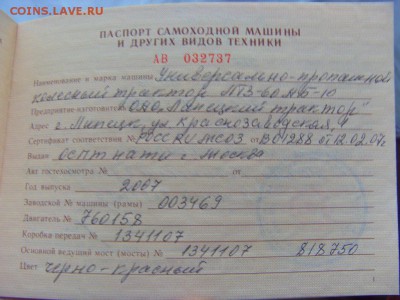 COINS.LAVE.RU
ПАСПОРТ САМОХОДНОЙ МАШИНЫ
И ДРУГИХ ВИДОВ ТЕХНИКИ
АВ 032737
Наименование и марка машины Универсально-пропашной
колесный трактор ЛТЗ-60АБ-10
Предприятие-изготовитель ОАО „Липецкий трактор"
Адрес г. Липецк, ул. Краснозаводская, 1
Сертификат соответствия № РОСС RU МС03. В01288 от 12.02.07г
Выдан ОС ПТ НАТИ г. Москва
Акт гостехосмотра № от
Год выпуска 2007
Заводской № машины (рамы) 003469
Двигатель № 760158
Коробка передач № 1341107
Основной ведущий мост (мосты) № 1341107 818750
Цвет черно-красный
1